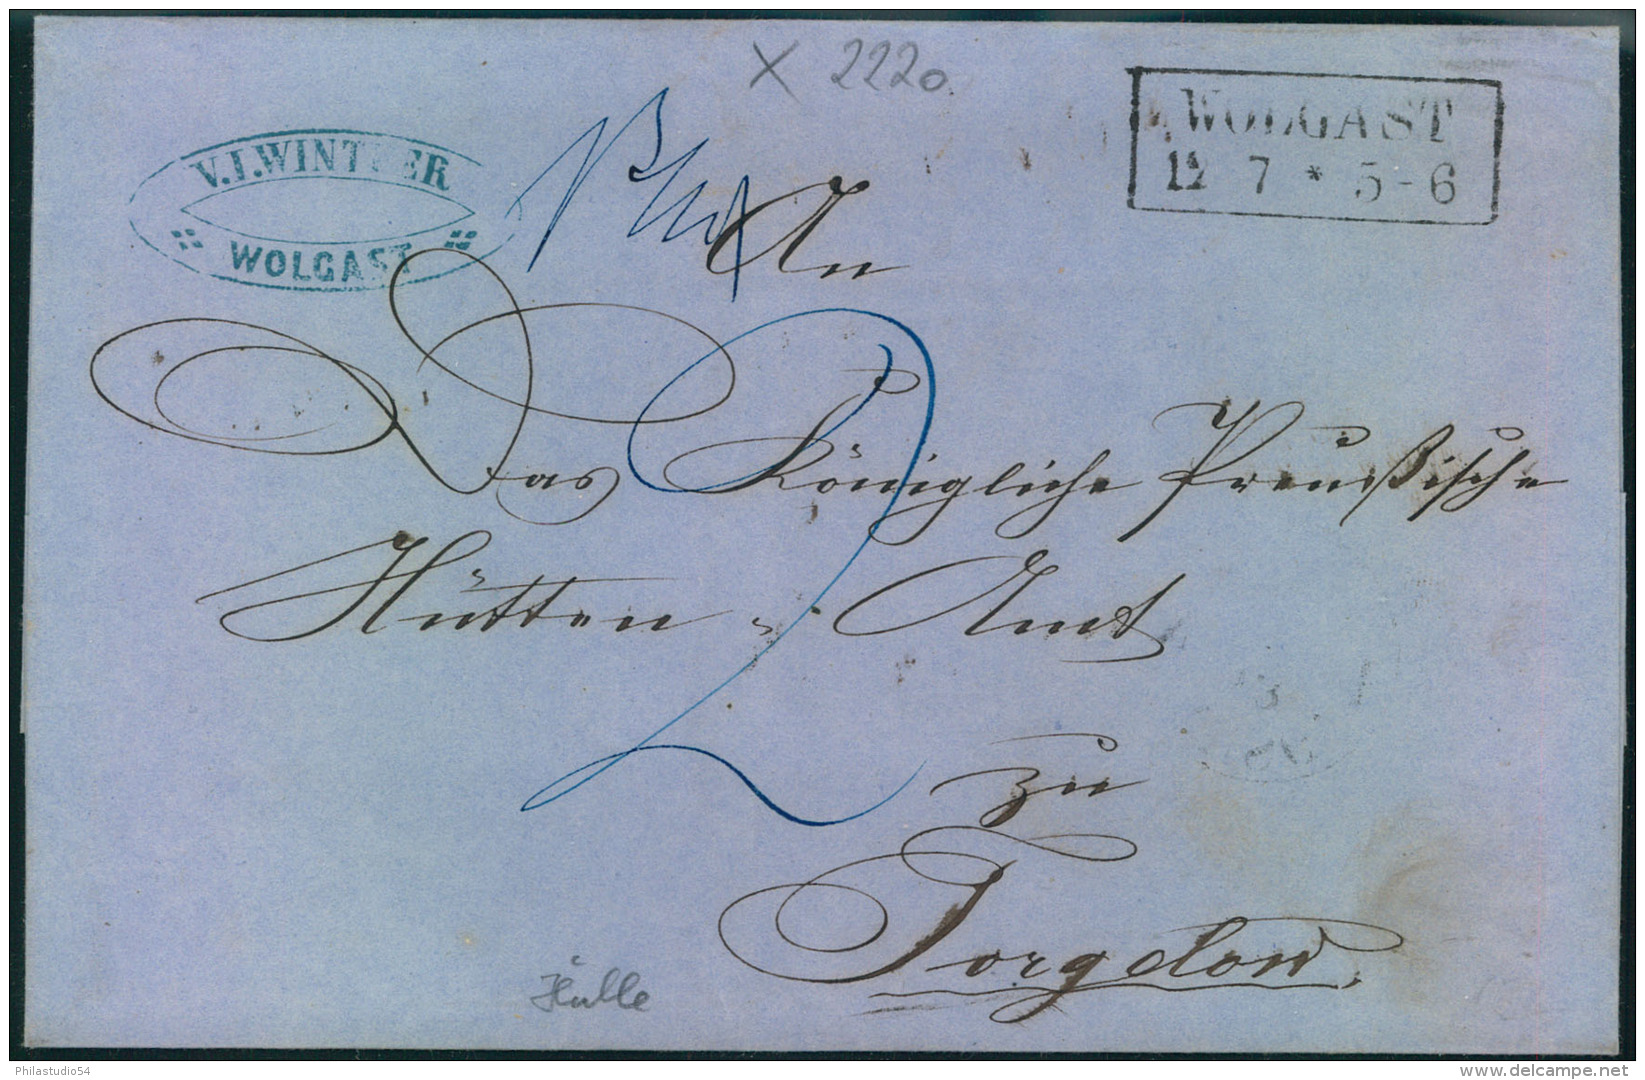 X 2220.
V.J.WINTHER
WOLGAST
WOLGAST
12 7 * 5-6
An
Das Königliche Preußische
Hütten-Amt
zu
Torgelow.
2
Hülle
Philastudio54
www.delcampe.net